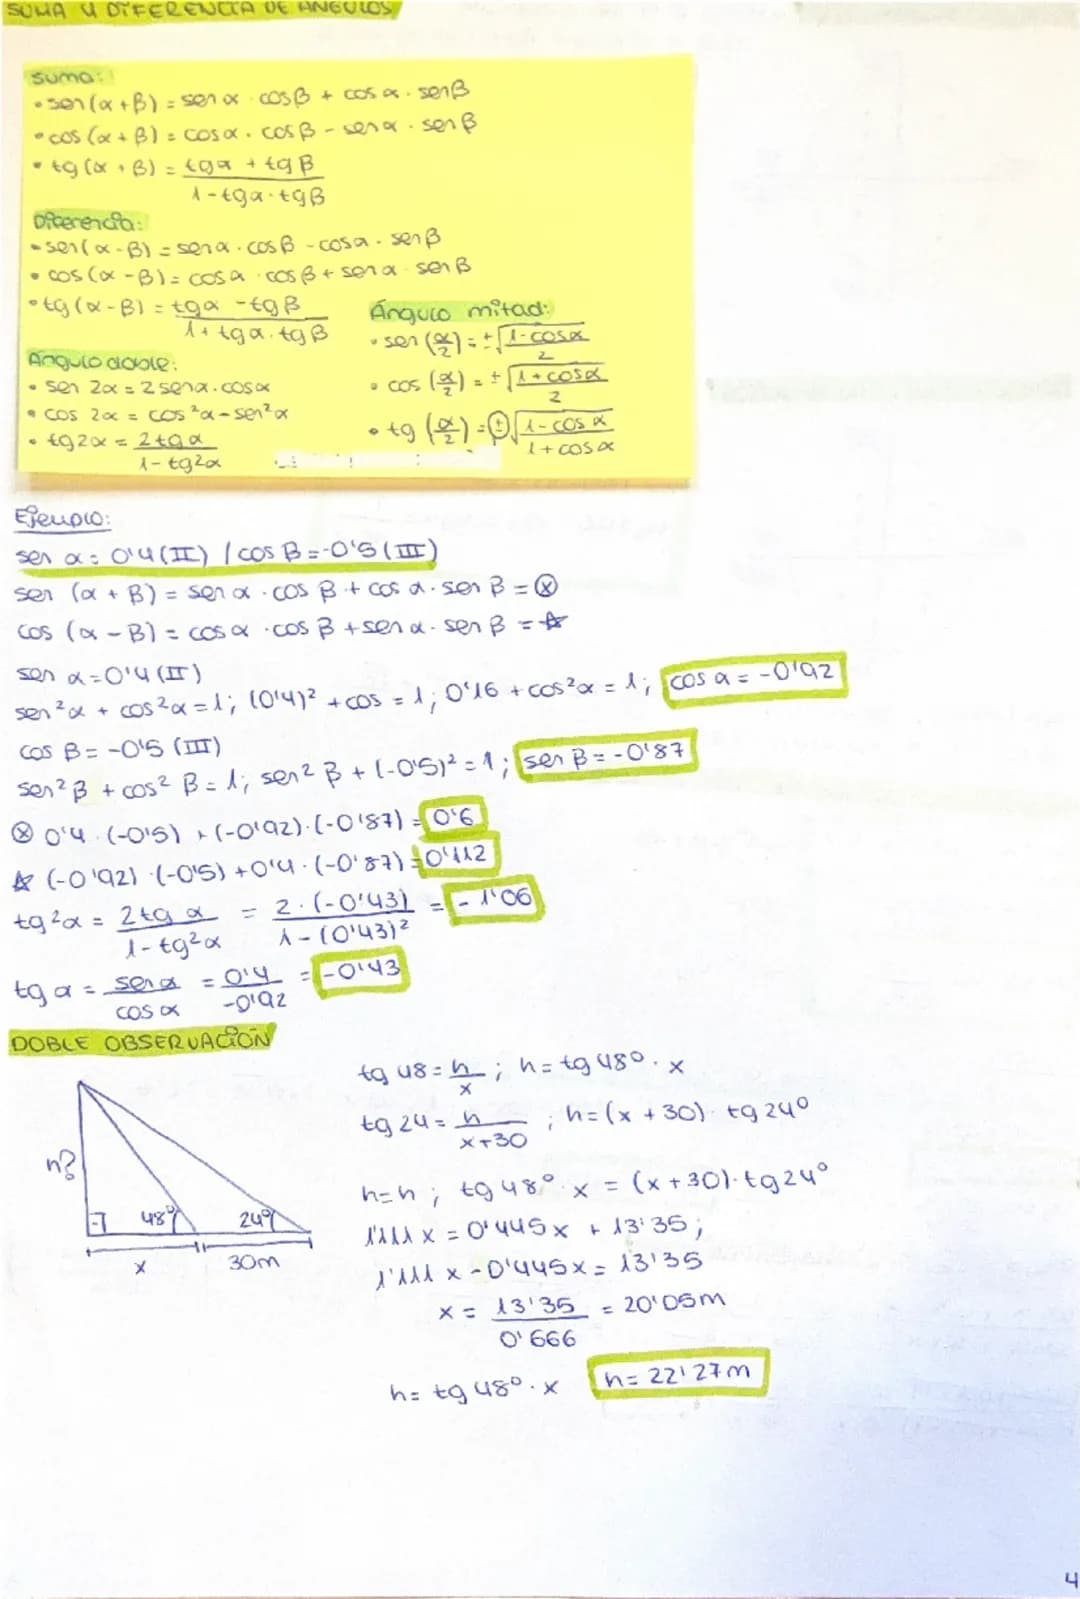 SUMA Y DIFERENCIA DE ÁNGULOS
Suma:
• sen (α + β) = sen α · cos β + cos α · sen β
• cos (α + β) = cos α · cos β - sen α · sen β
• tg (α + β) = tg α + tg β
1 - tg α · tg β
Diferencia:
• sen (α - β) = sen α · cos β - cos α · sen β
• cos (α - β) = cos α · cos β + sen α · sen β
• tg (α - β) = tg α - tg β
1 + tg α · tg β
Ángulo doble:
• sen 2α = 2 sen α · cos α
• cos 2α = cos²α - sen²α
• tg 2α = 2 tg α
1 - tg²α
Ángulo mitad:
• sen (α/2) = ±√1 - cos α
2
• cos (α/2) = ±√1 + cos α
2
• tg (α/2) = ±√1 - cos α
1 + cos α
Ejemplo:
sen α = 0'4 (II) / cos β = -0'5 (III)
sen (α + β) = sen α · cos β + cos α · sen β = ⊗
cos (α - β) = cos α · cos β + sen α · sen β = ☆
sen α = 0'4 (II)
sen²α + cos²α = 1; (0'4)² + cos = 1; 0'16 + cos²α = 1; cos α = -0'92
cos β = -0'5 (III)
sen²β + cos²β = 1; sen²β + (-0'5)² = 1; sen β = -0'87
⊗ 0'4 · (-0'5) + (-0'92) · (-0'87) = 0'6
☆ (-0'92) · (-0'5) + 0'4 · (-0'87) = 0'112
tg 2α = 2 tg α = 2 · (-0'43) = -1'06
1 - tg²α 1 - (0'43)²
tg α = sen α = 0'4 = -0'43
cos α -0'92
DOBLE OBSERVACIÓN
h?
48º
24º
x
30m
tg 48 = h ; h = tg 48º · x
x
tg 24 = h ; h = (x + 30) · tg 24º
x+30
h = h ; tg 48º · x = (x + 30) · tg 24º
1'111 x = 0'445 x + 13'35 ;
1'111 x - 0'445 x = 13'35
x = 13'35 = 20'05m
0'666
h = tg 48º · x h = 22'27m
4